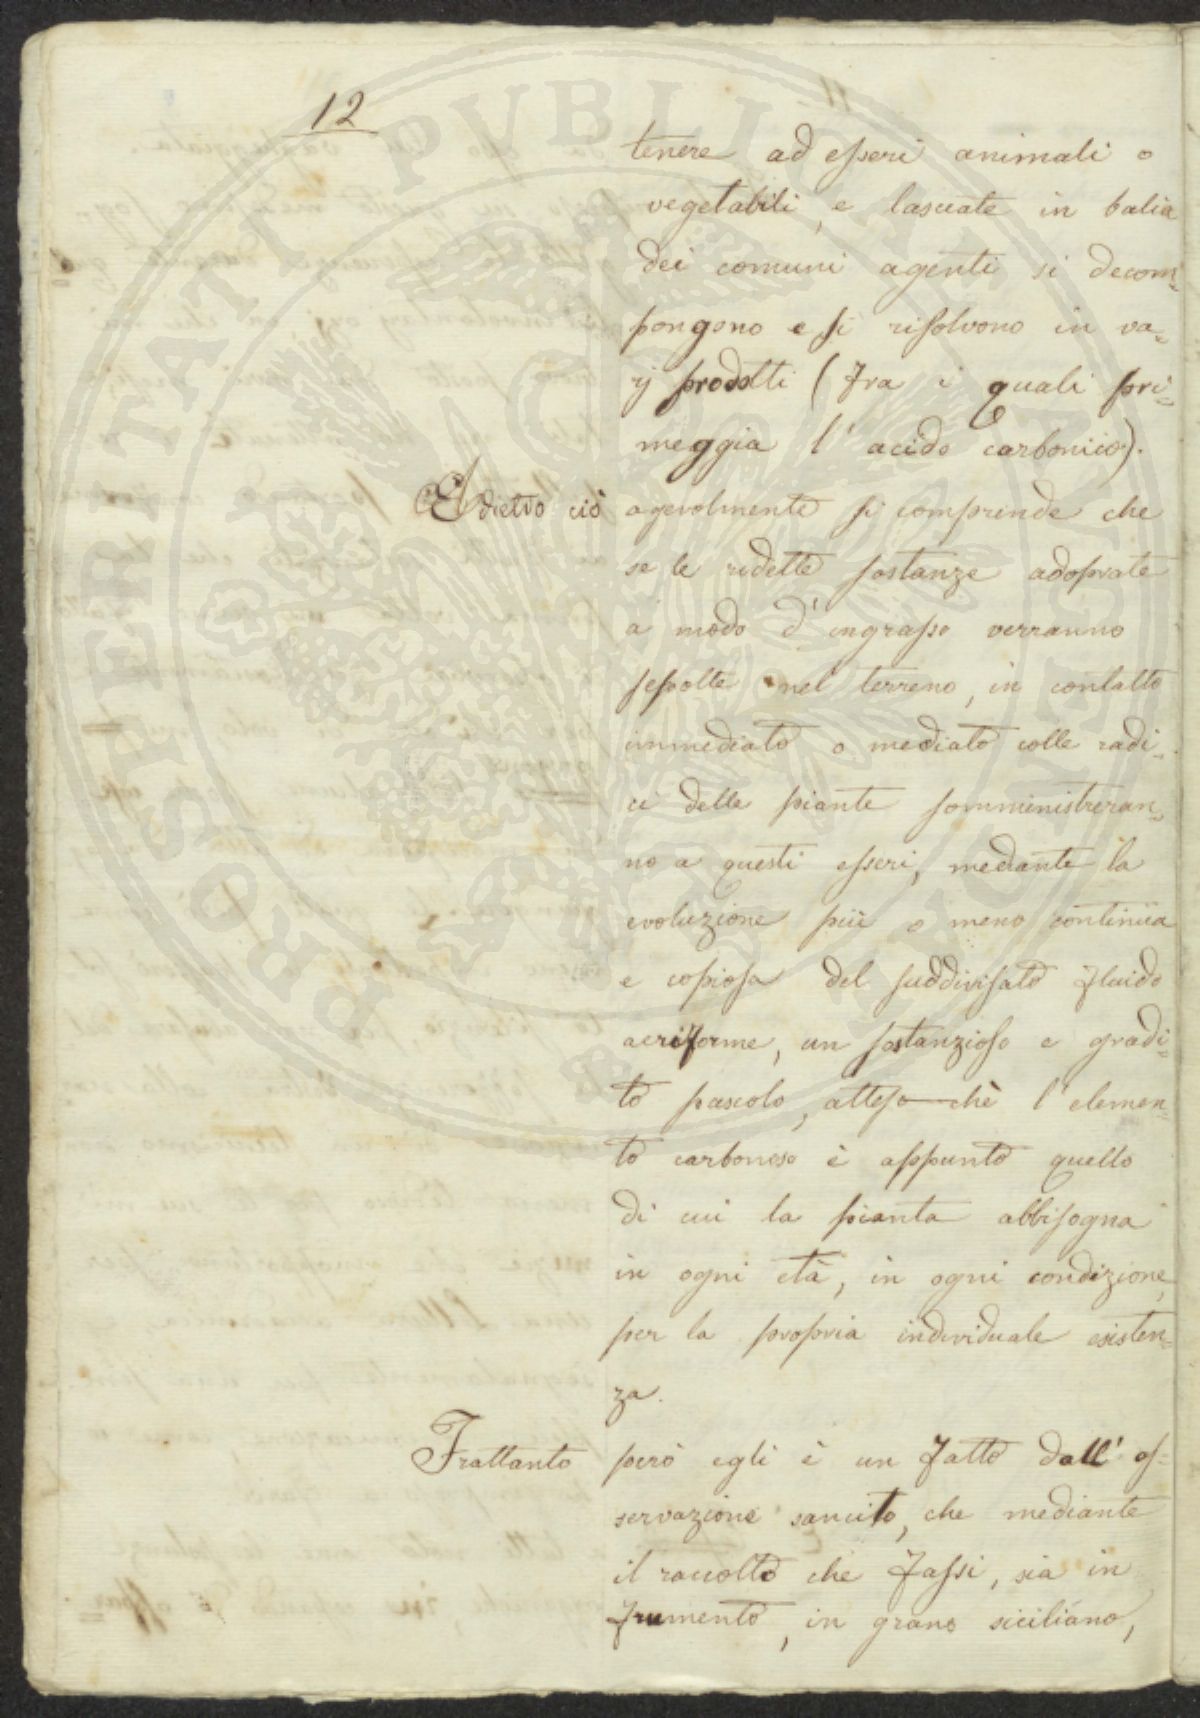 12
tenere ad esseri animali o
vegetabili, e lasciate in balia
dei comuni agenti si decom=
pongono e si risolvono in va=
rj prodotti (fra i quali pri=
meggia l'acido carbonico).
E dietro ciò agevolmente si comprende che
se le ridette sostanze adoprate
a modo d'ingrasso verranno
sepolte nel terreno, in contatto
immediato o mediato colle radi=
ci delle piante somministreran=
no a questi esseri, mediante la
evoluzione più o meno continua
e copiosa del suddivisato fluido
aeriforme, un sostanzioso e gradi=
to pascolo, atteso-chè l'elemen=
to carbonoso è appunto quello
di cui la pianta abbisogna
in ogni età, in ogni condizione,
per la propria individuale esisten=
za.
Frattanto però egli è un fatto dall'os=
servazione sancito, che mediante
il raccolto che fassi, sia in
frumento, in grano siciliano,
PROSPERITATI PUBLICAE AUGENDAE